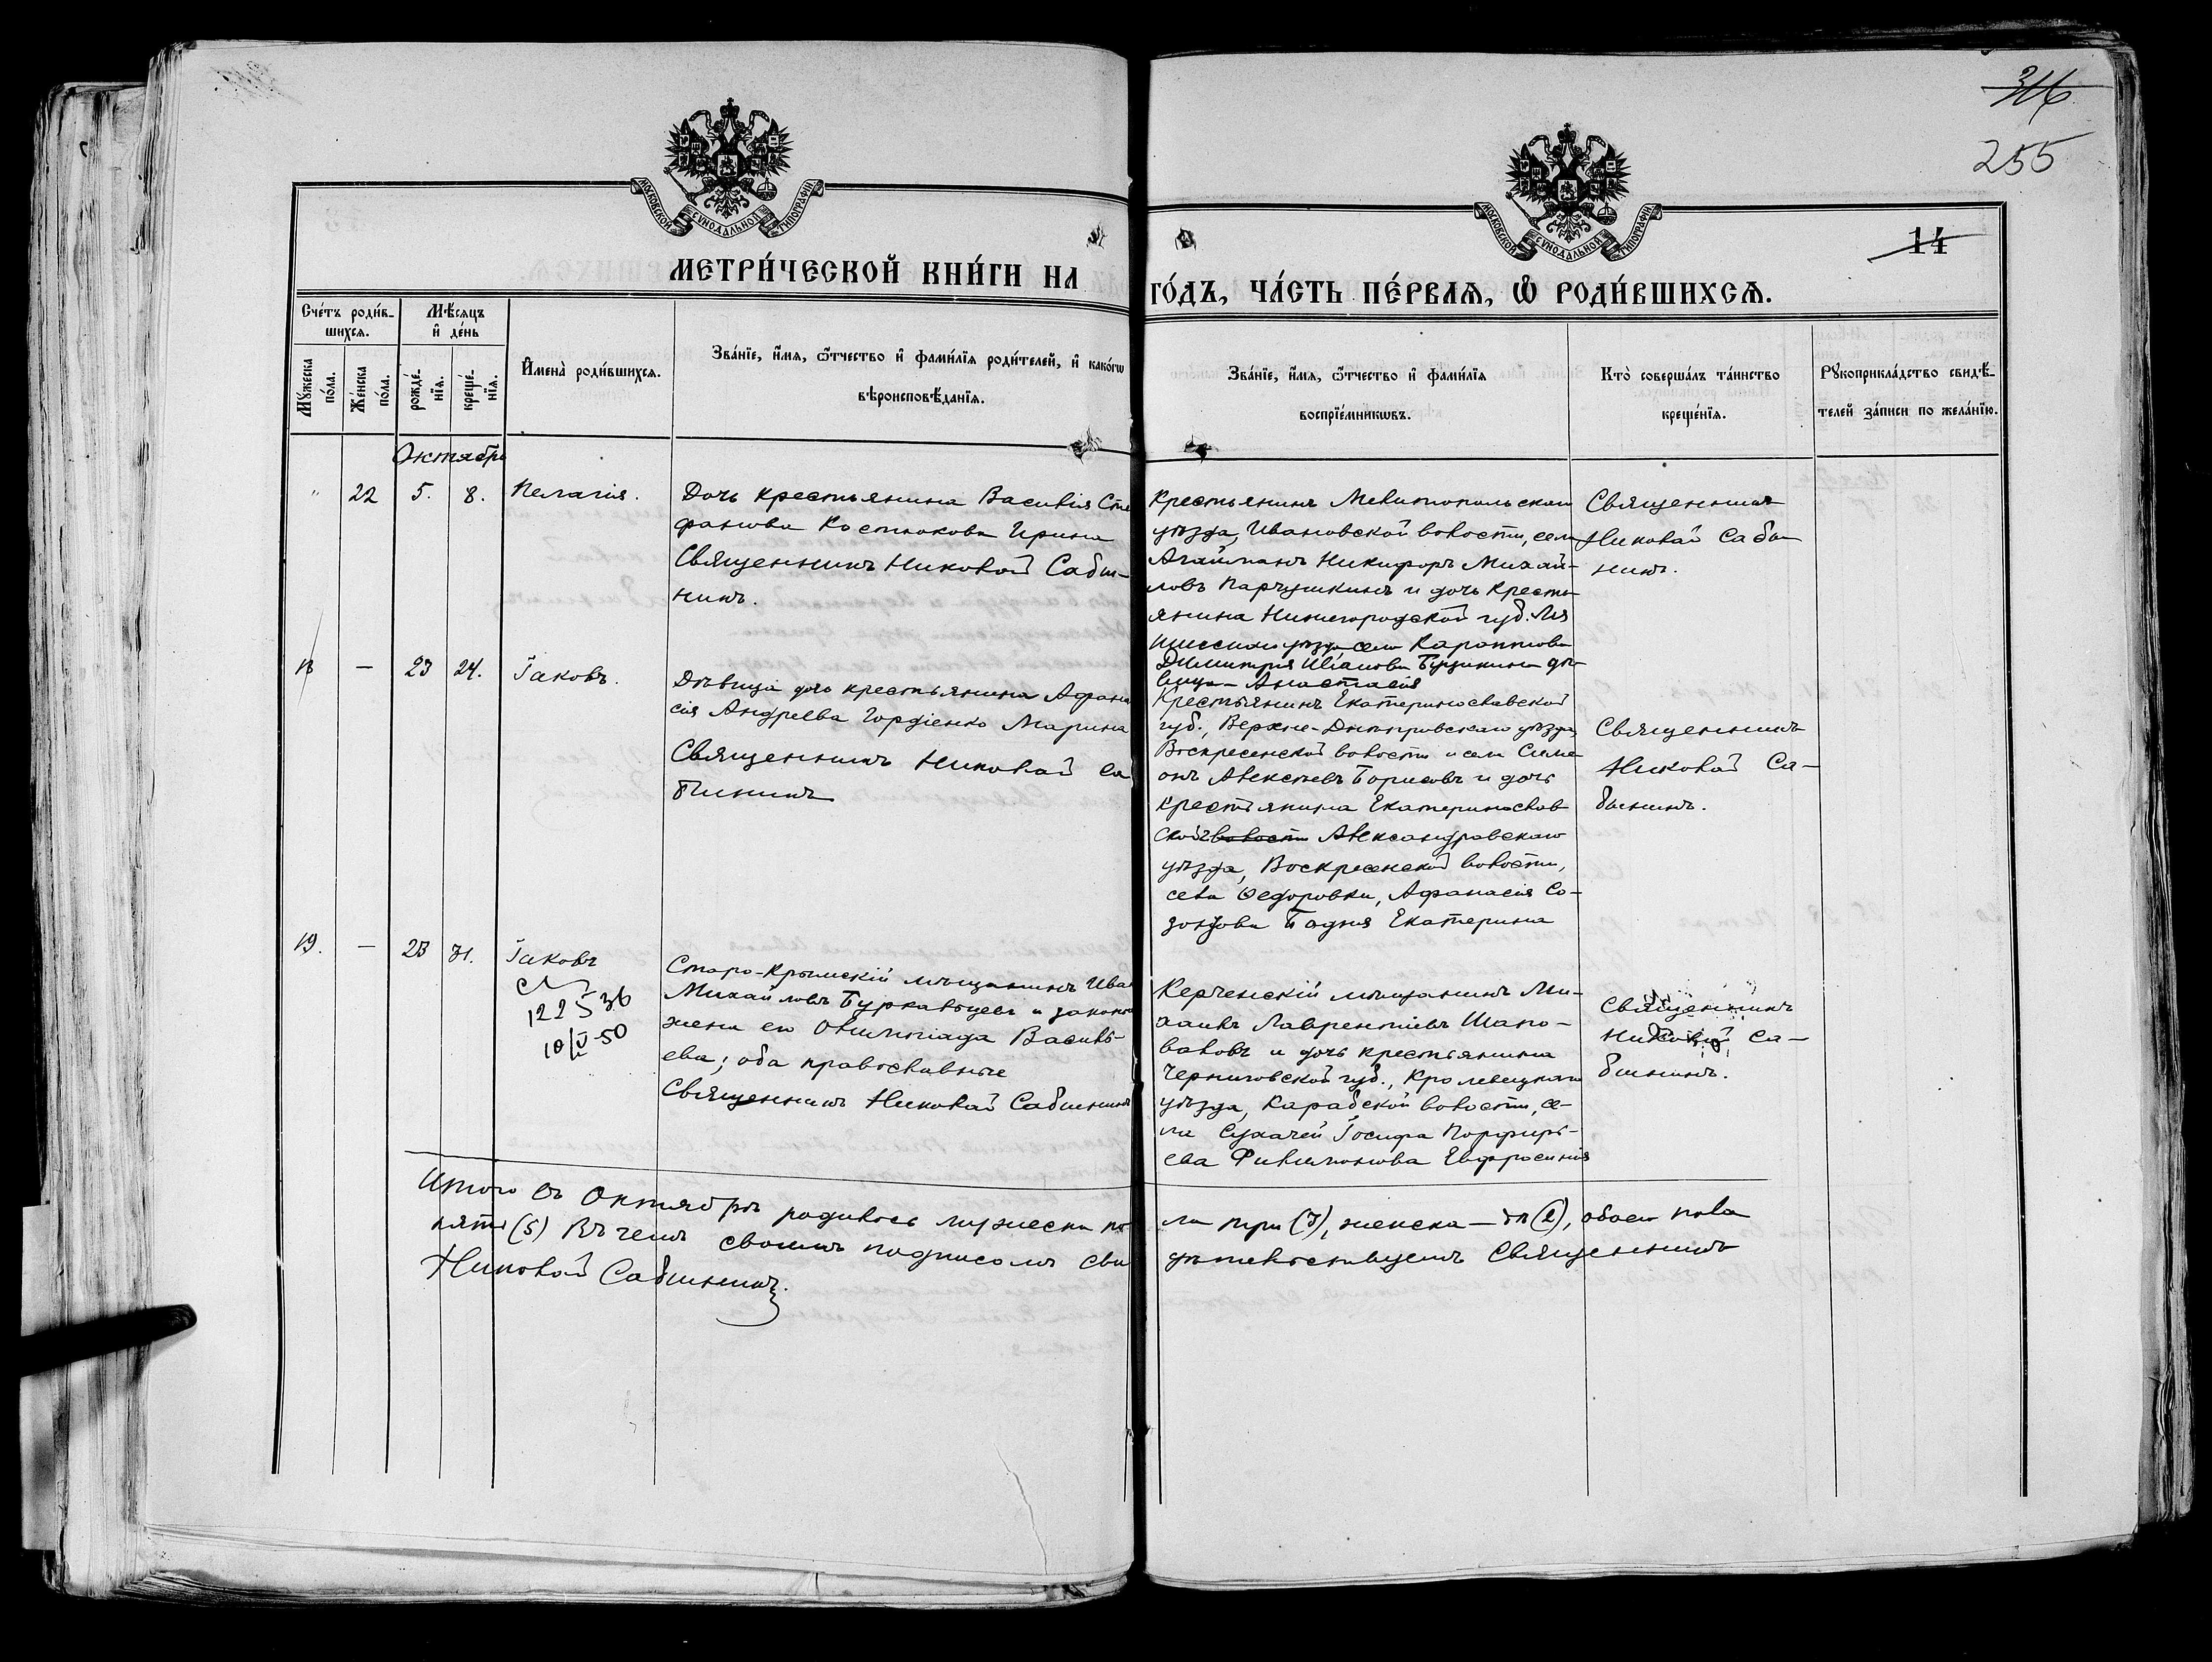 316
255
МОСКОВСКОЙ СѴНОДАЛЬНОЙ ТИПОГРАФІИ
МОСКОВСКОЙ СѴНОДАЛЬНОЙ ТИПОГРАФІИ
14
МЕТРИ́ЧЕСКОЙ КНИ́ГИ НА
ГО́ДЪ, ЧА́СТЬ ПЕ́РВАѦ, Ѡ РОДИ́ВШИХСѦ.
Сче́тъ роди́в-
шихсѧ.
Мꙋ́жеска
по́ла.
Же́нска
по́ла.
Мѣ́сѧцъ
и҆ де́нь
рожде́-
нїѧ.
креще́-
нїѧ.
И҆мена̀ роди́вшихсѧ.
Зва́нїе, и҆́мѧ, ѻ҆́тчество и҆ фами́лїѧ роди́телей, и҆ како́гѡ
вѣроисповѣ́данїѧ.
Зва́нїе, и҆́мѧ, ѻ҆́тчество и҆ фами́лїѧ
воспрїе́мникѡвъ.
Кто̀ соверша́лъ та́инство
креще́нїѧ.
Рꙋкоприкла́дство свидѣ́-
телей за́писи по жела́нїю.
Октябрь
" 22 5. 8. Пелагія.
Дочь крестьянина Василія Сте
фанова Костюкова Ирина
Священникъ Николай Сабин-
нинъ.
Крестьянинъ Мелитопольскаго
уѣзда, Ивановской волости, села
Агайманъ Никифоръ Михай-
ловъ Парчушкинъ и дочь кресть
янина Нижегородской губ.
уѣзда села
Димитрія Иванова дѣ-
вица - Анастасія
Священникъ
Николай Саби
нинъ.
18 — 23 24. Іаковъ.
Дѣвица дочь крестьянина Афана
сія Андреева Гордіенко Марина
Священникъ Николай Са
бининъ
Крестьянинъ Екатеринославской
губ., Верхне-Днѣпровскаго уѣзда,
Воскресенской волости и села Симе
онъ Алексѣевъ Борисовъ и дочь
крестьянина Екатеринослав
ской волости Александровскаго
уѣзда, Воскресенской волости,
села Ѳедоровки, Афанасія Со-
зонтова Екатерина
Священникъ
Николай Са-
бининъ.
19. — 23 31. Іаковъ
122536
10/V-50
Старо-Крымскій мѣщанинъ Ива
Михайловъ Буркавцевъ и законн
жена его Олимпіада Василь-
ева; оба православные
Священникъ Николай Сабининъ
Керченскій мѣщанинъ Ми-
хаилъ Лаврентіевъ Шапо-
валовъ и дочь крестьянина
Черниговской губ., Кролевецкаго
уѣзда, Карабской волости, се-
ла Сухачей Іосифа Порфирь-
ева Филимонова Евфросинія
Священникъ
Николай Са-
бининъ.
Итого въ Октябрѣ родилось мужеска по
ла три (3), женска — двѣ (2), обоего пола
пять (5) Въ чемъ своимъ подписомъ сви
дѣтельствуемъ Священникъ
Николай Сабининъ.